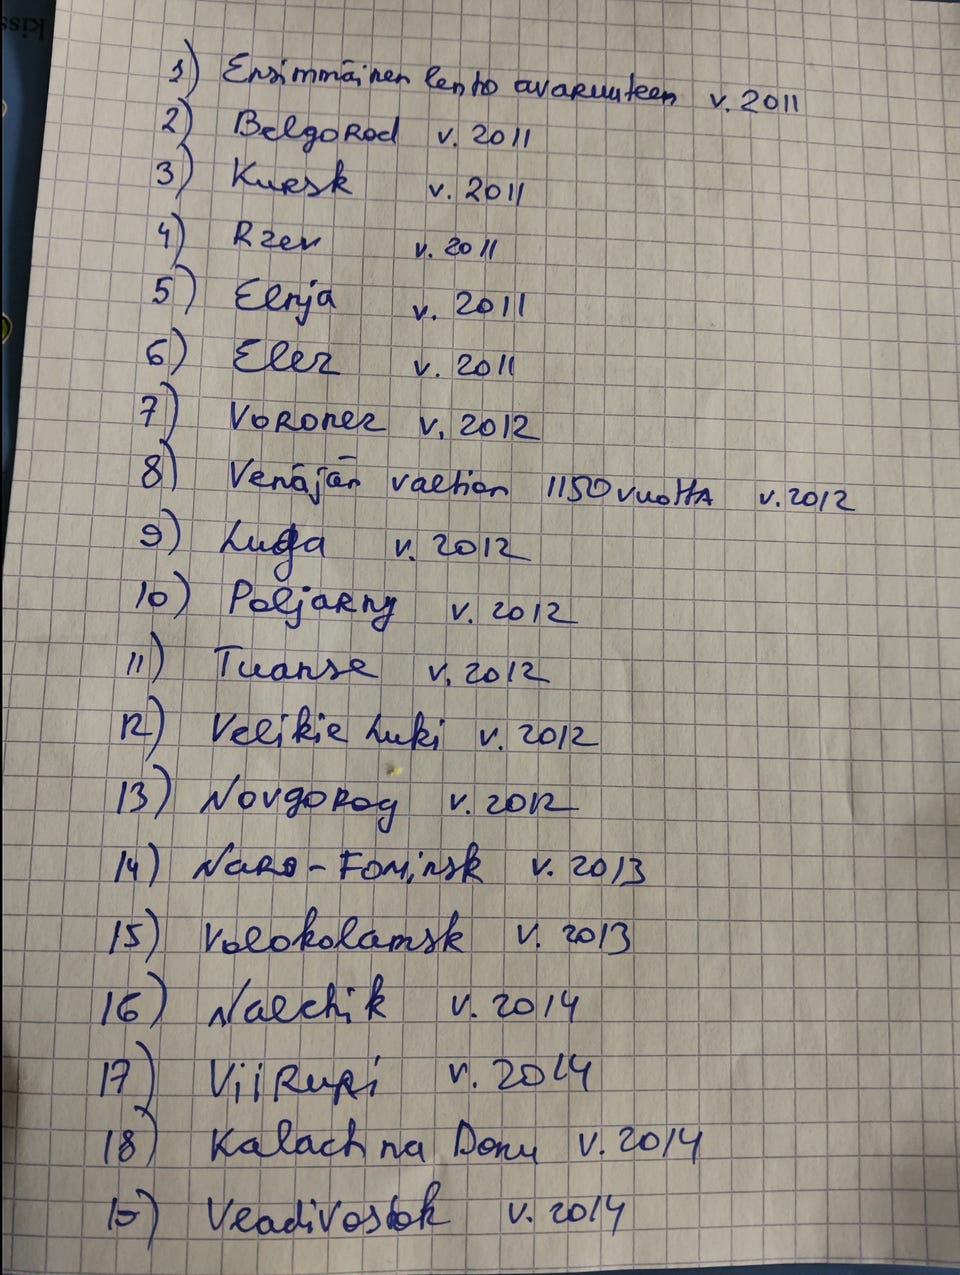 1) Ensimmäinen lento avaruuteen v. 2011
2) Belgorod v. 2011
3) Kursk v. 2011
4) Rzev v. 2011
5) Elnja v. 2011
6) Elez v. 2011
7) Voronez v. 2012
8) Venäjän valtion 1150 vuotta v. 2012
9) Luga v. 2012
10) Poljarny v. 2012
11) Tuapse v. 2012
12) Velikie Luki v. 2012
13) Novgorog v. 2012
14) Naro-Fominsk v. 2013
15) Volokolamsk v. 2013
16) Nalchik v. 2014
17) Viipuri v. 2014
18) Kalach na Donu v. 2014
19) Vladivostok v. 2014